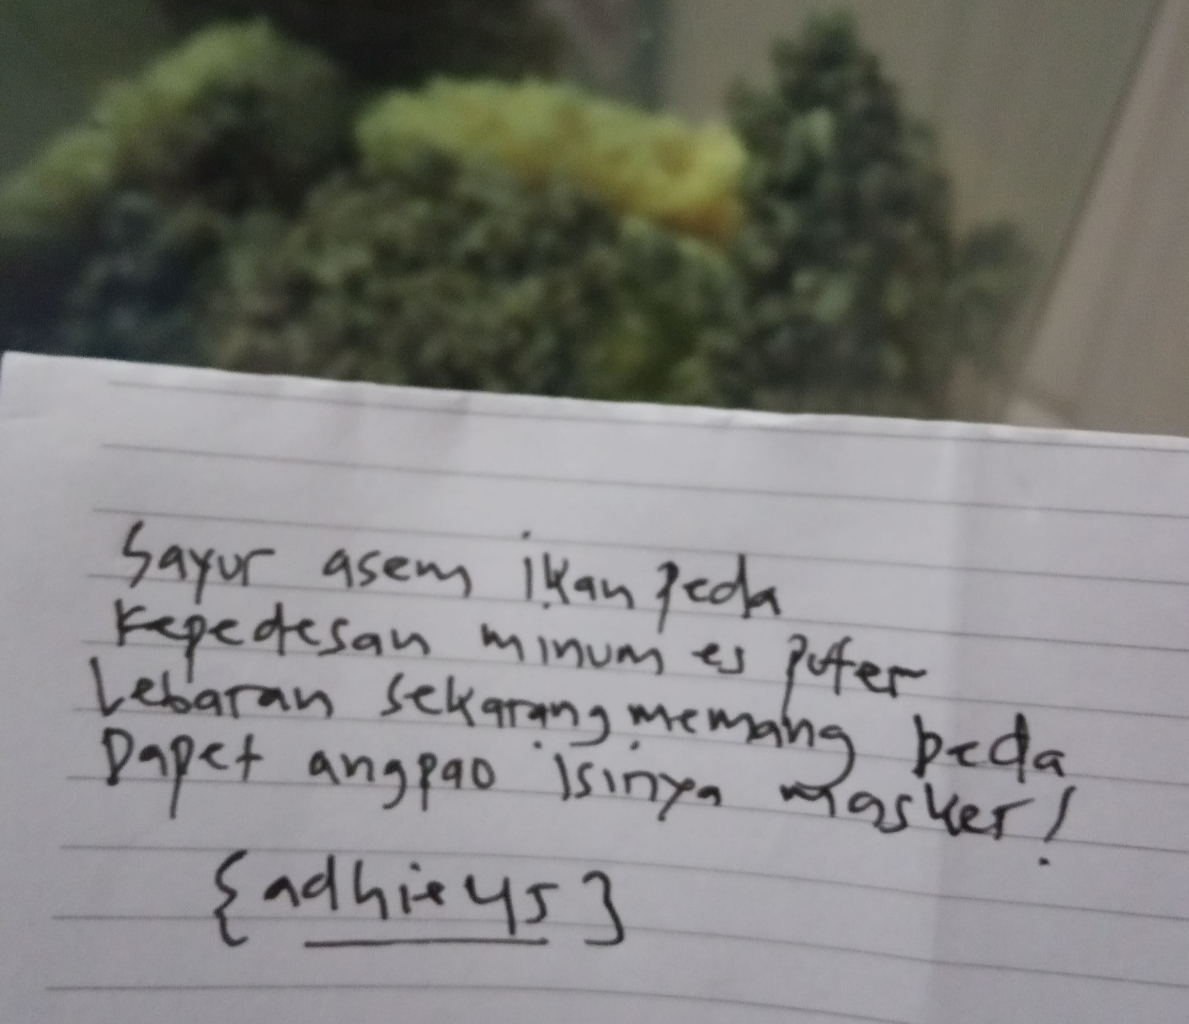 Sayur asem ikan peda
Kepedesan minum es puter
Lebaran sekarang memang beda
Dapet angpao isinya masker!
{adhieys}